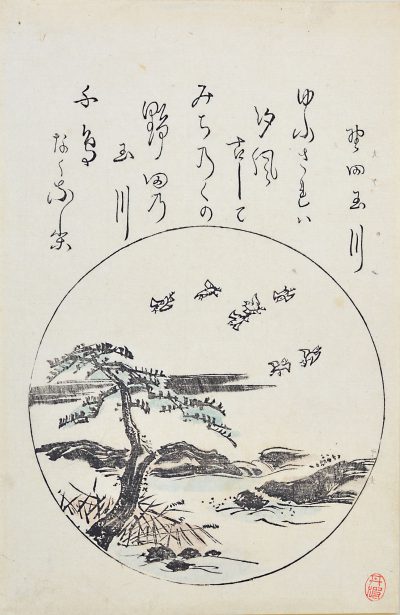 埜田玉川
ゆふされは
汐風
古して
みち乃くの
野田乃
玉川
千鳥
なくなり